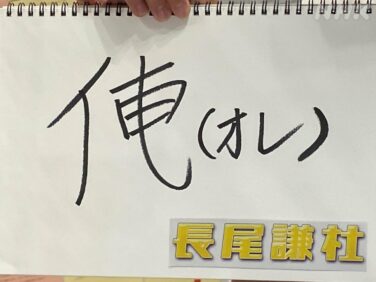 俺(オレ)
長尾謙杜